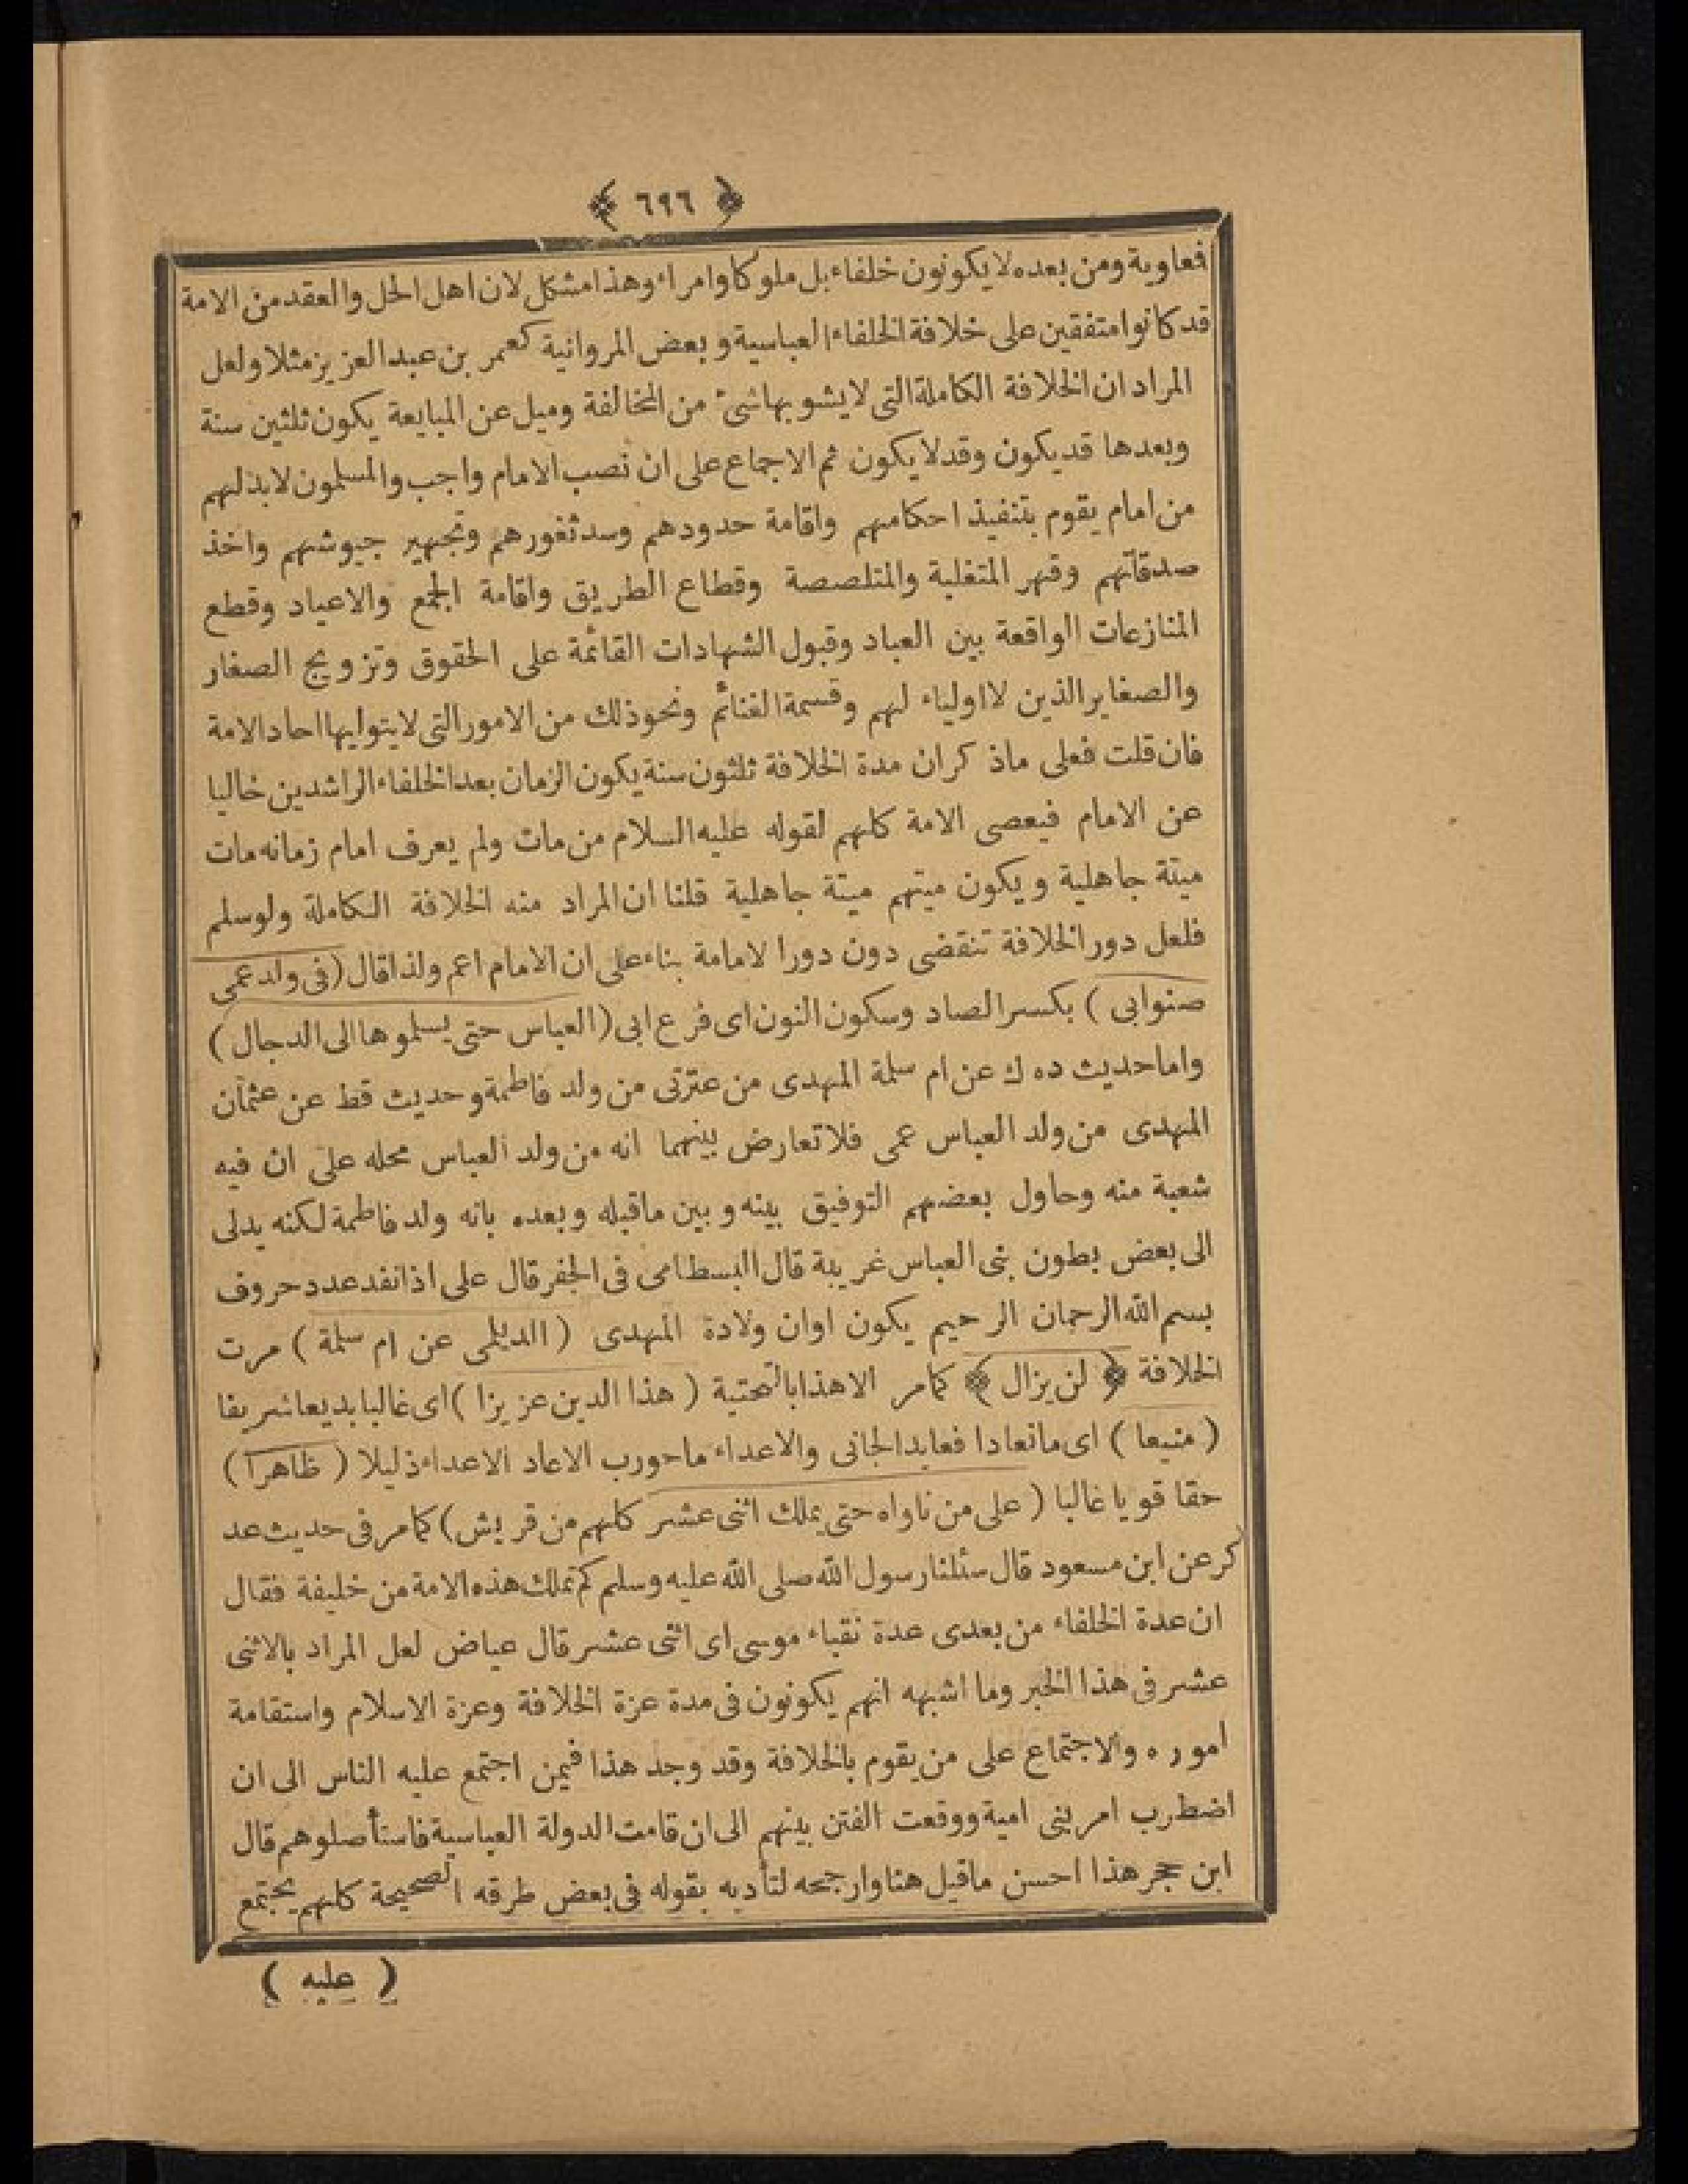 ﴿ ٦٩٦ ﴾
فعاوية ومن بعده لا يكونون خلفاء بل ملوكا وامراء وهذا مشكل لان اهل الحل والعقد من الامة
قد كانوا متفقين على خلافة الخلفاء العباسية و بعض المروانية كعمر بن عبد العزيز مثلا ولعل
المراد ان الخلافة الكاملة التى لا يشوبها شئ من المخالفة وميل عن المبايعة يكون ثلثين سنة
وبعدها قد يكون وقد لا يكون ثم الاجماع على ان نصب الامام واجب والمسلمون لابد لهم
من امام يقوم بتنفيذ احكامهم واقامة حدودهم وسد ثغورهم وتجهيز جيوشهم واخذ
صدقاتهم وقهر المتغلبة والمتلصصة وقطاع الطريق واقامة الجمع والاعياد وقطع
المنازعات الواقعة بين العباد وقبول الشهادات القائمة على الحقوق وتزويج الصغار
والصغاير الذين لا اولياء لهم وقسمة الغنائم ونحو ذلك من الامور التى لا يتوليها احاد الامة
فان قلت فعلى ماذكر ان مدة الخلافة ثلثون سنة يكون الزمان بعد الخلفاء الراشدين خاليا
عن الامام فيعصى الامة كلهم لقوله عليه السلام من مات ولم يعرف امام زمانه مات
ميتة جاهلية ويكون ميتهم ميتة جاهلية قلنا ان المراد منه الخلافة الكاملة ولو سلم
فلعل دور الخلافة تنقضى دون دور الامامة بناء على ان الامام اعم ولذا قال (فى ولد عمى
صنوابى) بكسر الصاد وسكون النون اى فرع ابى (العباس حتى يسلموها الى الدجال)
واما حديث ده ك عن ام سلمة المهدى من عترتى من ولد فاطمة وحديث قط عن عثمان
المهدى من ولد العباس عمى فلا تعارض بينهما انه من ولد العباس محله على ان فيه
شعبة منه وحاول بعضهم التوفيق بينه وبين ماقبله وبعده بانه ولد فاطمة لكنه يدلى
الى بعض بطون بنى العباس غريبة قال البسطامى فى الجفر قال على اذا نفد عدد حروف
بسم الله الرحمان الرحيم يكون اوان ولادة المهدى (الديلمى عن ام سلمة) مرت
الخلافة ﴿ لن يزال ﴾ كمامر الا هذا بالتحتية (هذا الدين عزيزا) اى غالبا بديعا شريفا
(منيعا) اى مانعا دافعا يد الجانى والاعداء ماحورب الاعاد الاعداء ذليلا (ظاهرا)
حقا قويا غالبا (على من ناواه حتى يملك اثنى عشر كلهم من قريش) كمامر فى حديث عد
كر عن ابن مسعود قال سئلنا رسول الله صلى الله عليه وسلم كم تملك هذه الامة من خليفة فقال
ان عدة الخلفاء من بعدى عدة نقباء موسى اى اثنى عشر قال عياض لعل المراد بالاثنى
عشر فى هذا الخبر وما اشبهه انهم يكونون فى مدة عزة الخلافة وعزة الاسلام واستقامة
اموره والاجتماع على من يقوم بالخلافة وقد وجد هذا فيمن اجتمع عليه الناس الى ان
اضطرب امر بنى امية ووقعت الفتن بينهم الى ان قامت الدولة العباسية فاستأصلوهم قال
ابن حجر هذا احسن ماقيل هنا وارجحه لتأديه بقوله فى بعض طرقه الصحيحة كلهم يجتمع
( عليه )